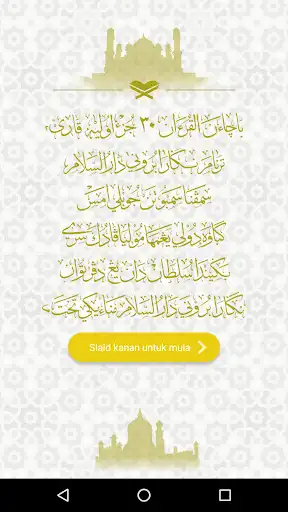 باچاءن القرءان ٣٠ جزء اوليه قارئ٢
ترنام نݢارا بروني دارالسلام
سمڤنا سمبوتن جوبلي امس
کباوه دولي يڠمها موليا ڤادوک سري
بݢيندا سلطان دان يڠ دڤرتوان
نݢارا بروني دارالسلام منائيکي تخت
Slaid kanan untuk mula